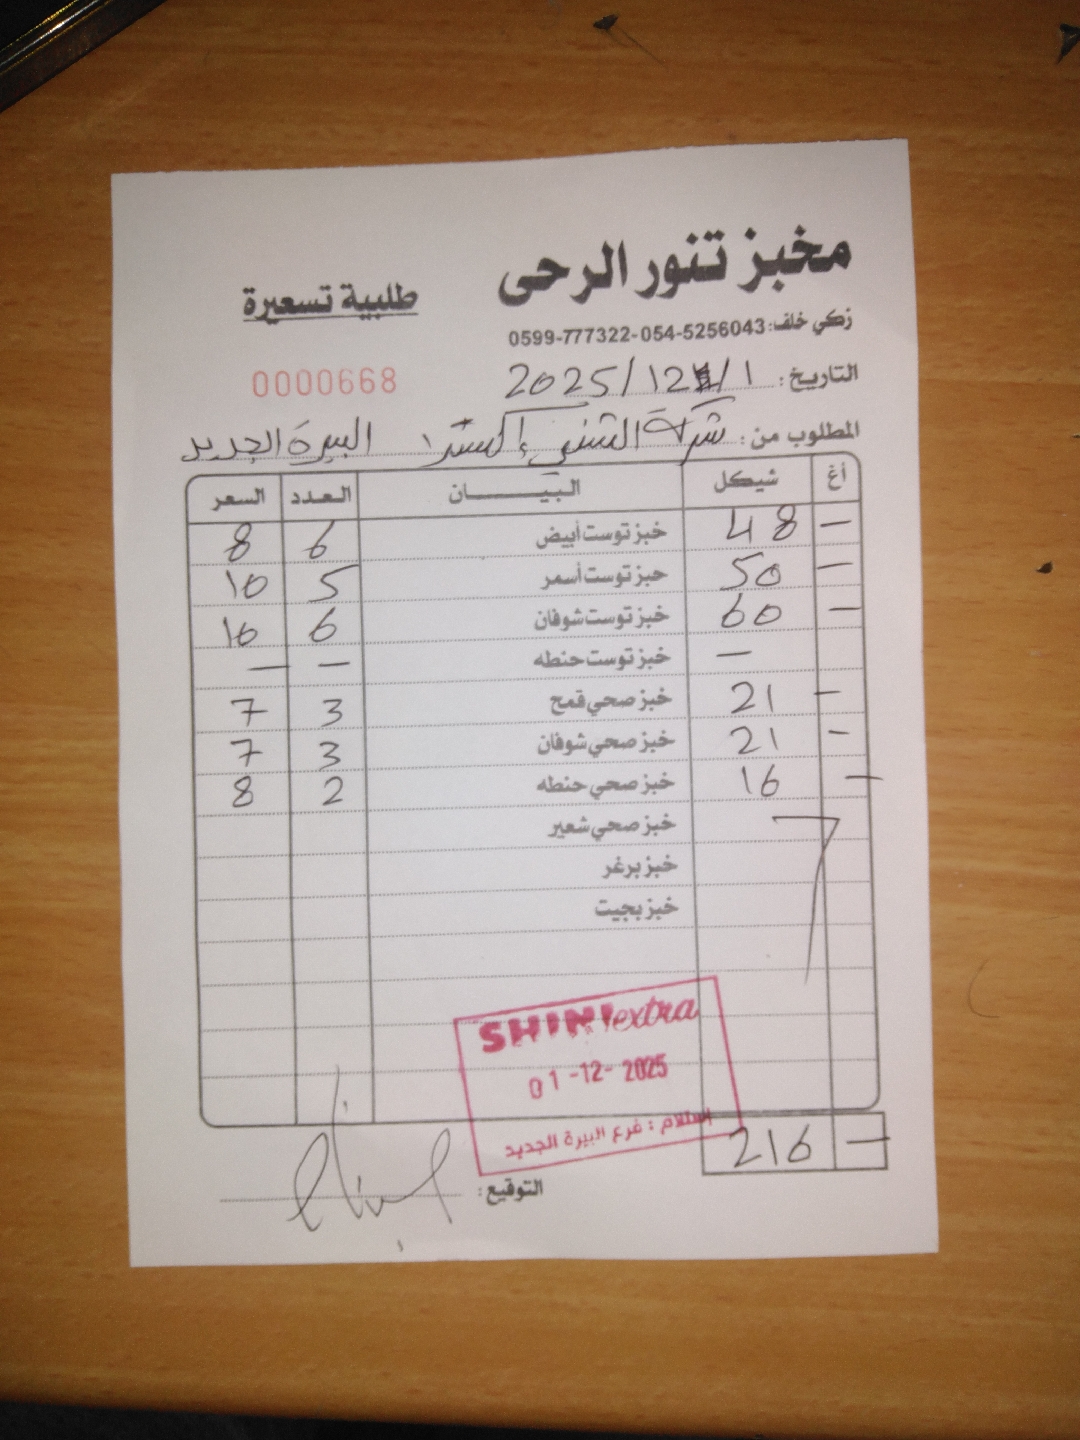 مخبز تنور الرحى
طلبية تسعيرة
زكي خلف: 054-5256043-0599-777322
التاريخ: 1/12/2025
0000668
المطلوب من: شركة الشني إكسترا البيرة الجديد
أغ شيكل البيـــــــان العدد السعر
— 48 خبز توست أبيض 6 8
— 50 خبز توست أسمر 5 10
— 60 خبز توست شوفان 6 10
— خبز توست حنطه — —
— 21 خبز صحي قمح 3 7
— 21 خبز صحي شوفان 3 7
— 16 خبز صحي حنطه 2 8
خبز صحي شعير
خبز برغر
خبز بجيت
SHINI extra
01-12-2025
إستلام : فرع البيرة الجديد
— 216
التوقيع: